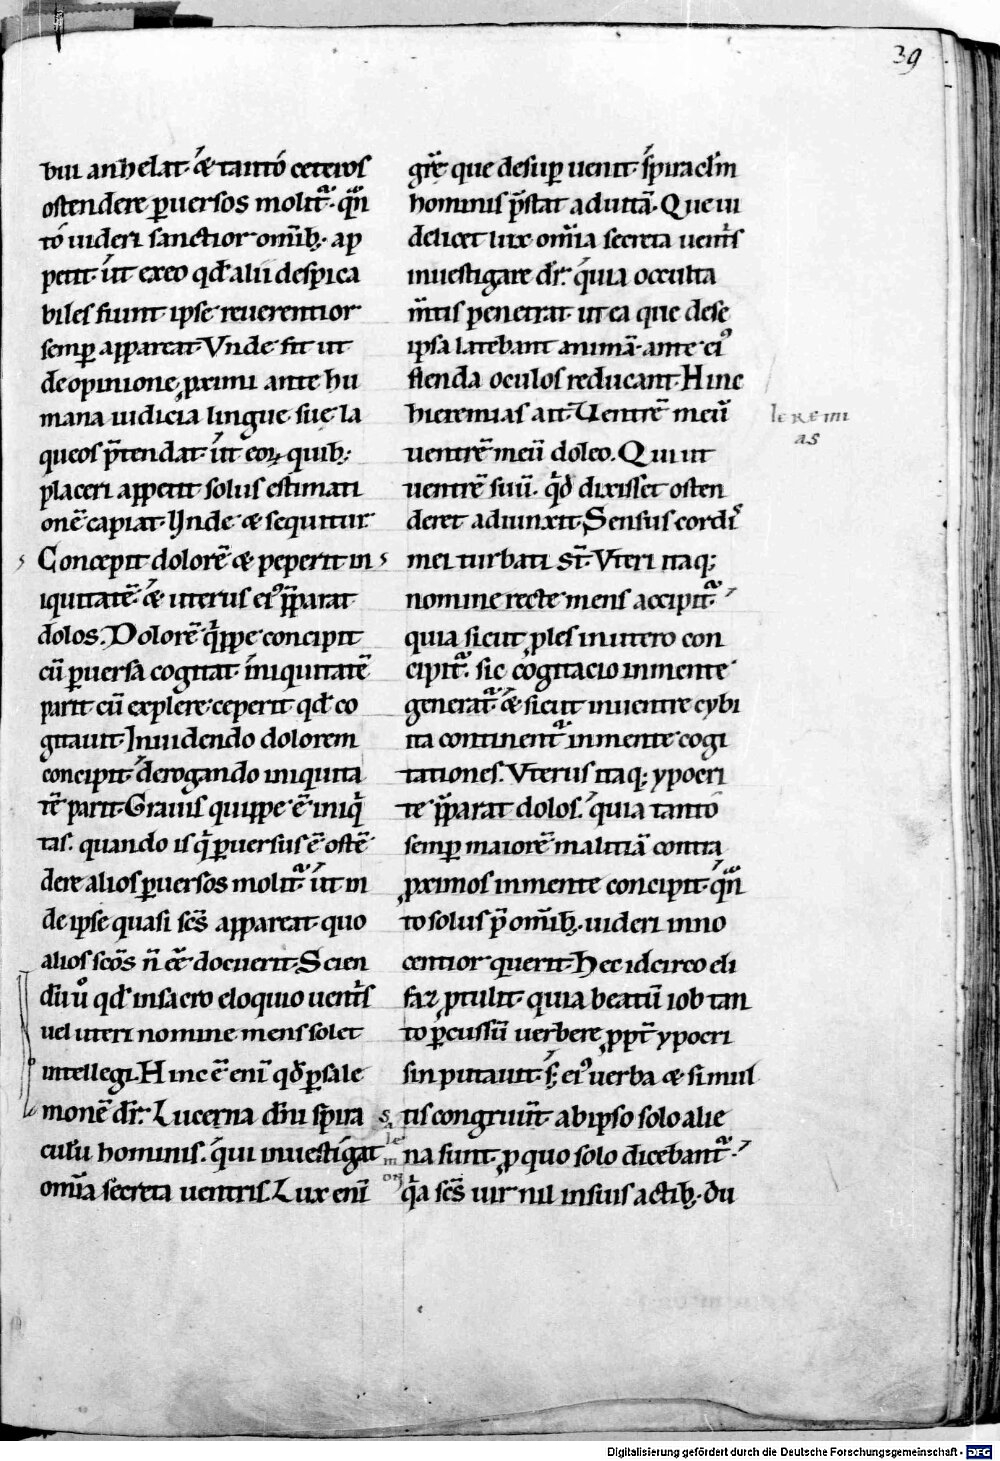 39
bui anhelat. & tantó ceteros
ostendere ꝑuersos molit᷑. qn̄
tó uideri sanctior om̄ib;. ap
petit. ut ex eo qđ alii despica
biles fiunt. ipse reuerentior
semꝑ appareat. Vnde fit ut
de opinione ꝓximi ante hu
mana iudicia lingue sue la
queos p̄tendat. ut eoꝝ quib;
placeri appetit solus estimati
onē capiat. Unde & sequitur
Concepit dolorē & peperit in
iquitatē. & uterus ei᾿ p̄parat
dolos. Dolorē q̄ppe concipit
cū ꝑuersa cogitat. iniquitatē
parit cū explere ceperit qđ co
gitauit. Inuidendo dolorem
concipit. derogando iniquita
tē parit. Grauis quippe ē iniq̇
tas. quando is q̇ ꝑuersus ē ostē
dere alios ꝑuersos molit᷑. ut in
de ipse quasi scs̄ appareat. quo
alios scōs n̄ eē docuerit. Scien
dū ů qđ in sacro eloquio uent̄s
uel uteri nomine mens solet
intellegi. Hinc ē enī qđ ꝑ sale
monē dr̄. Lucerna dn̄i spira
culū hominis. qui inuestigat
om̄ia secreta uentris. Lux enī
Salemon
gr̄e que desuꝑ uenit. spiraclm̄
hominis p̄stat ad uitā. Que ui
delicet lux om̄ia secreta uent̄s
inuestigare dr̄. quia occulta
m̄tis penetrat. ut ea que de se
ipsa latebant animā. ante ei᾿
flenda oculos reducant. Hinc
hieremias ait. Uentrē meū
uentrē meū doleo. Qui ut
uentrē suū. qđ dixisset osten
deret adiunxit. Sensus cordis
mei turbati st̄. Vteri itaq;
nomine recte mens accipit᷑.
quia sicut ꝓles in utero con
cipit᷑. sic cogitacio in mente
generat᷑. & sicut in uentre cybi
ita continent᷑ in mente cogi
tationes. Vterus itaq; ypocri
te p̄parat dolos. quia tantó
semꝑ maiorē malitiā contra
ꝓximos in mente concipit. qn̄
to solus p̄ om̄ib;. uideri inno
centior querit. Hec idcirco eli
faz ꝓtulit. quia beatū iob tan
to ꝑcussū uerbere ꝓpt̄ ypocri
sin putauit. s; ei᾿ uerba & simul
tis congruūt. ab ipso solo alie
na sunt. ꝓ quo solo dicebant᷑.
q̇a scs̄ uir nil in suis actib;. du
Ieremi
as
Digitalisierung gefördert durch die Deutsche Forschungsgemeinschaft - DFG